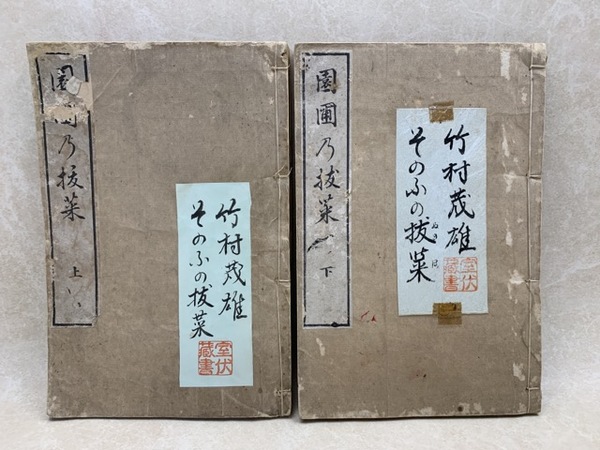 園圃乃拔菜 上
竹村茂雄
そのふの拔菜
室伏
藏書
園圃乃拔菜 下
竹村茂雄
そのふの拔菜
ぬき な
室伏
藏書